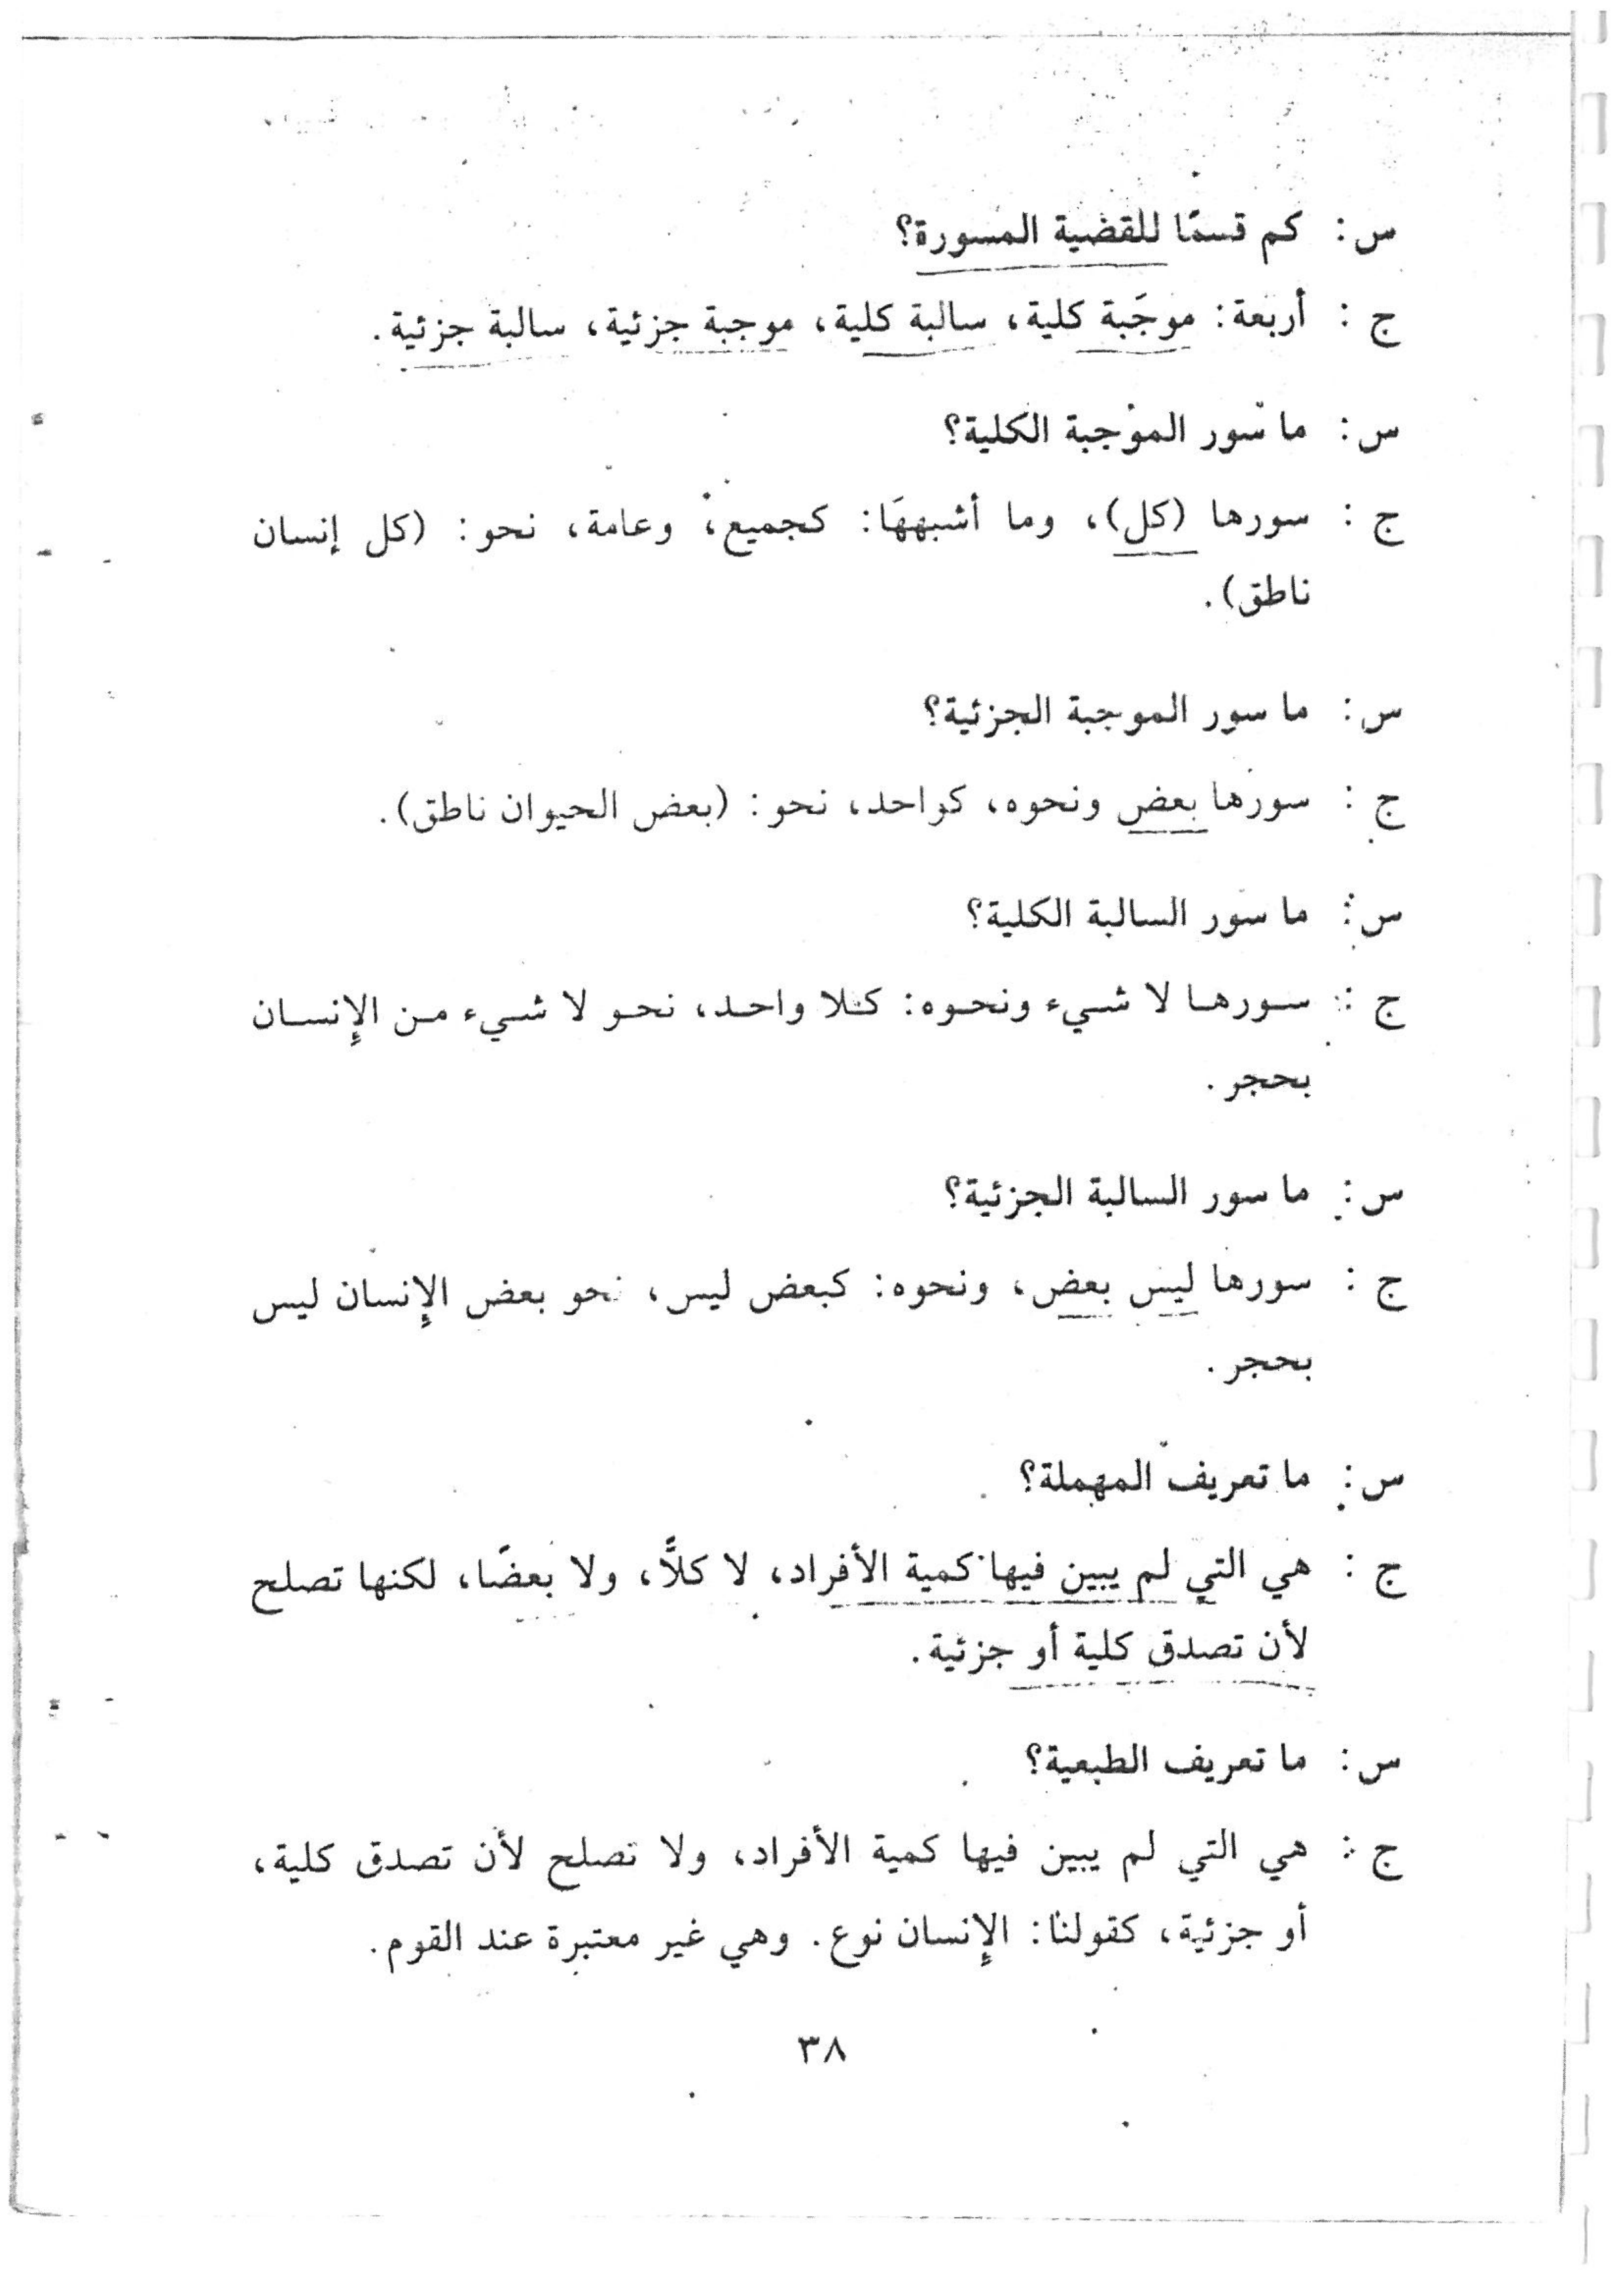 س : كم قسمًا للقضية المسورة؟
ج : أربعة: موجَبة كلية، سالبة كلية، موجبة جزئية، سالبة جزئية.
س : ما سور الموجبة الكلية؟
ج : سورها (كل)، وما أشبههَا: كجميع، وعامة، نحو: (كل إنسان
ناطق).
س : ما سور الموجبة الجزئية؟
ج : سورها بعض ونحوه، كواحد، نحو: (بعض الحيوان ناطق).
س : ما سور السالبة الكلية؟
ج : سورها لا شيء ونحوه: كلا واحد، نحو لا شيء من الإنسان
بحجر.
س : ما سور السالبة الجزئية؟
ج : سورها ليس بعض، ونحوه: كبعض ليس، نحو بعض الإنسان ليس
بحجر.
س : ما تعريف المهملة؟
ج : هي التي لم يبين فيها كمية الأفراد، لا كلًّا، ولا بعضًا، لكنها تصلح
لأن تصدق كلية أو جزئية.
س : ما تعريف الطبعية؟
ج : هي التي لم يبين فيها كمية الأفراد، ولا تصلح لأن تصدق كلية،
أو جزئية، كقولنا: الإنسان نوع. وهي غير معتبرة عند القوم.
٣٨